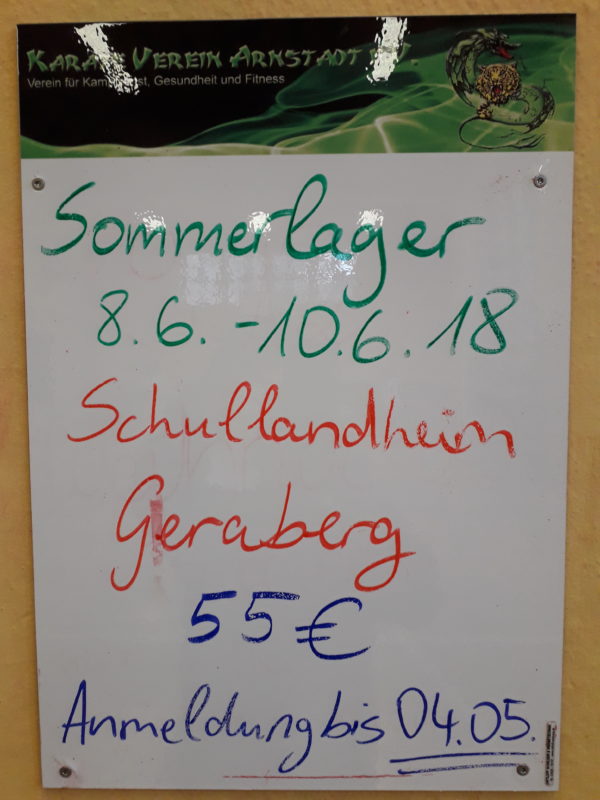 KARATE VEREIN ARNSTADT e.V.
Verein für Kampfkunst, Gesundheit und Fitness
Sommerlager
8.6. - 10.6. 18
Schullandheim
Geraberg
55€
Anmeldung bis 04.05.